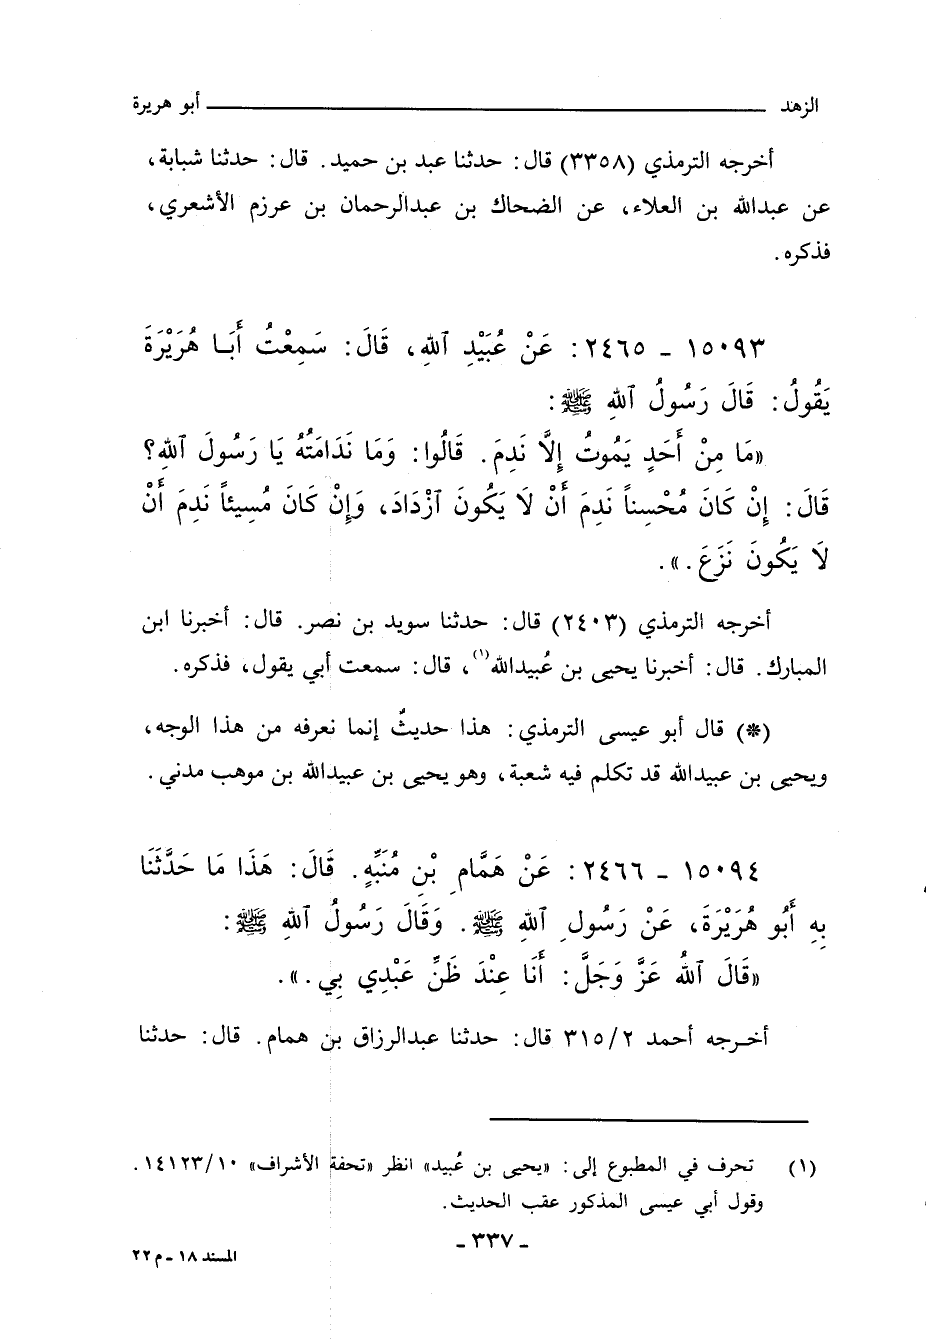 الزهد ــــــــــ أبو هريرة
أخرجه الترمذي (٣٣٥٨) قال: حدثنا عبد بن حميد. قال: حدثنا شبابة،
عن عبدالله بن العلاء، عن الضحاك بن عبدالرحمان بن عرزم الأشعري،
فذكره.
١٥٠٩٣ - ٢٤٦٥: عَنْ عُبَيْدِ ٱللهِ، قَالَ: سَمِعْتُ أَبَا هُرَيْرَةَ
يَقُولُ: قَالَ رَسُولُ ٱللهِ ﷺ:
«مَا مِنْ أَحَدٍ يَمُوتُ إِلَّا نَدِمَ. قَالُوا: وَمَا نَدَامَتُهُ يَا رَسُولَ ٱللهِ؟
قَالَ: إِنْ كَانَ مُحْسِناً نَدِمَ أَنْ لَا يَكُونَ ٱزْدَادَ، وَإِنْ كَانَ مُسِيئاً نَدِمَ أَنْ
لَا يَكُونَ نَزَعَ.».
أخرجه الترمذي (٢٤٠٣) قال: حدثنا سويد بن نصر. قال: أخبرنا ابن
المبارك. قال: أخبرنا يحيى بن عُبيدالله(١)، قال: سمعت أبي يقول، فذكره.
(*) قال أبو عيسى الترمذي: هذا حديثٌ إنما نعرفه من هذا الوجه،
ويحيى بن عبيدالله قد تكلم فيه شعبة، وهو يحيى بن عبيدالله بن موهب مدني.
١٥٠٩٤ - ٢٤٦٦: عَنْ هَمَّامِ بْنِ مُنَبِّهٍ. قَالَ: هَذَا مَا حَدَّثَنَا
بِهِ أَبُو هُرَيْرَةَ، عَنْ رَسُولِ ٱللهِ ﷺ. وَقَالَ رَسُولُ ٱللهِ ﷺ:
«قَالَ ٱللهُ عَزَّ وَجَلَّ: أَنَا عِنْدَ ظَنِّ عَبْدِي بِي.».
أخرجه أحمد ٣١٥/٢ قال: حدثنا عبدالرزاق بن همام. قال: حدثنا
(١) تحرف في المطبوع إلى: «يحيى بن عُبيد» انظر «تحفة الأشراف» ١٤١٢٣/١٠.
وقول أبي عيسى المذكور عقب الحديث.
- ٣٣٧ -
المسند ١٨ - م ٢٢